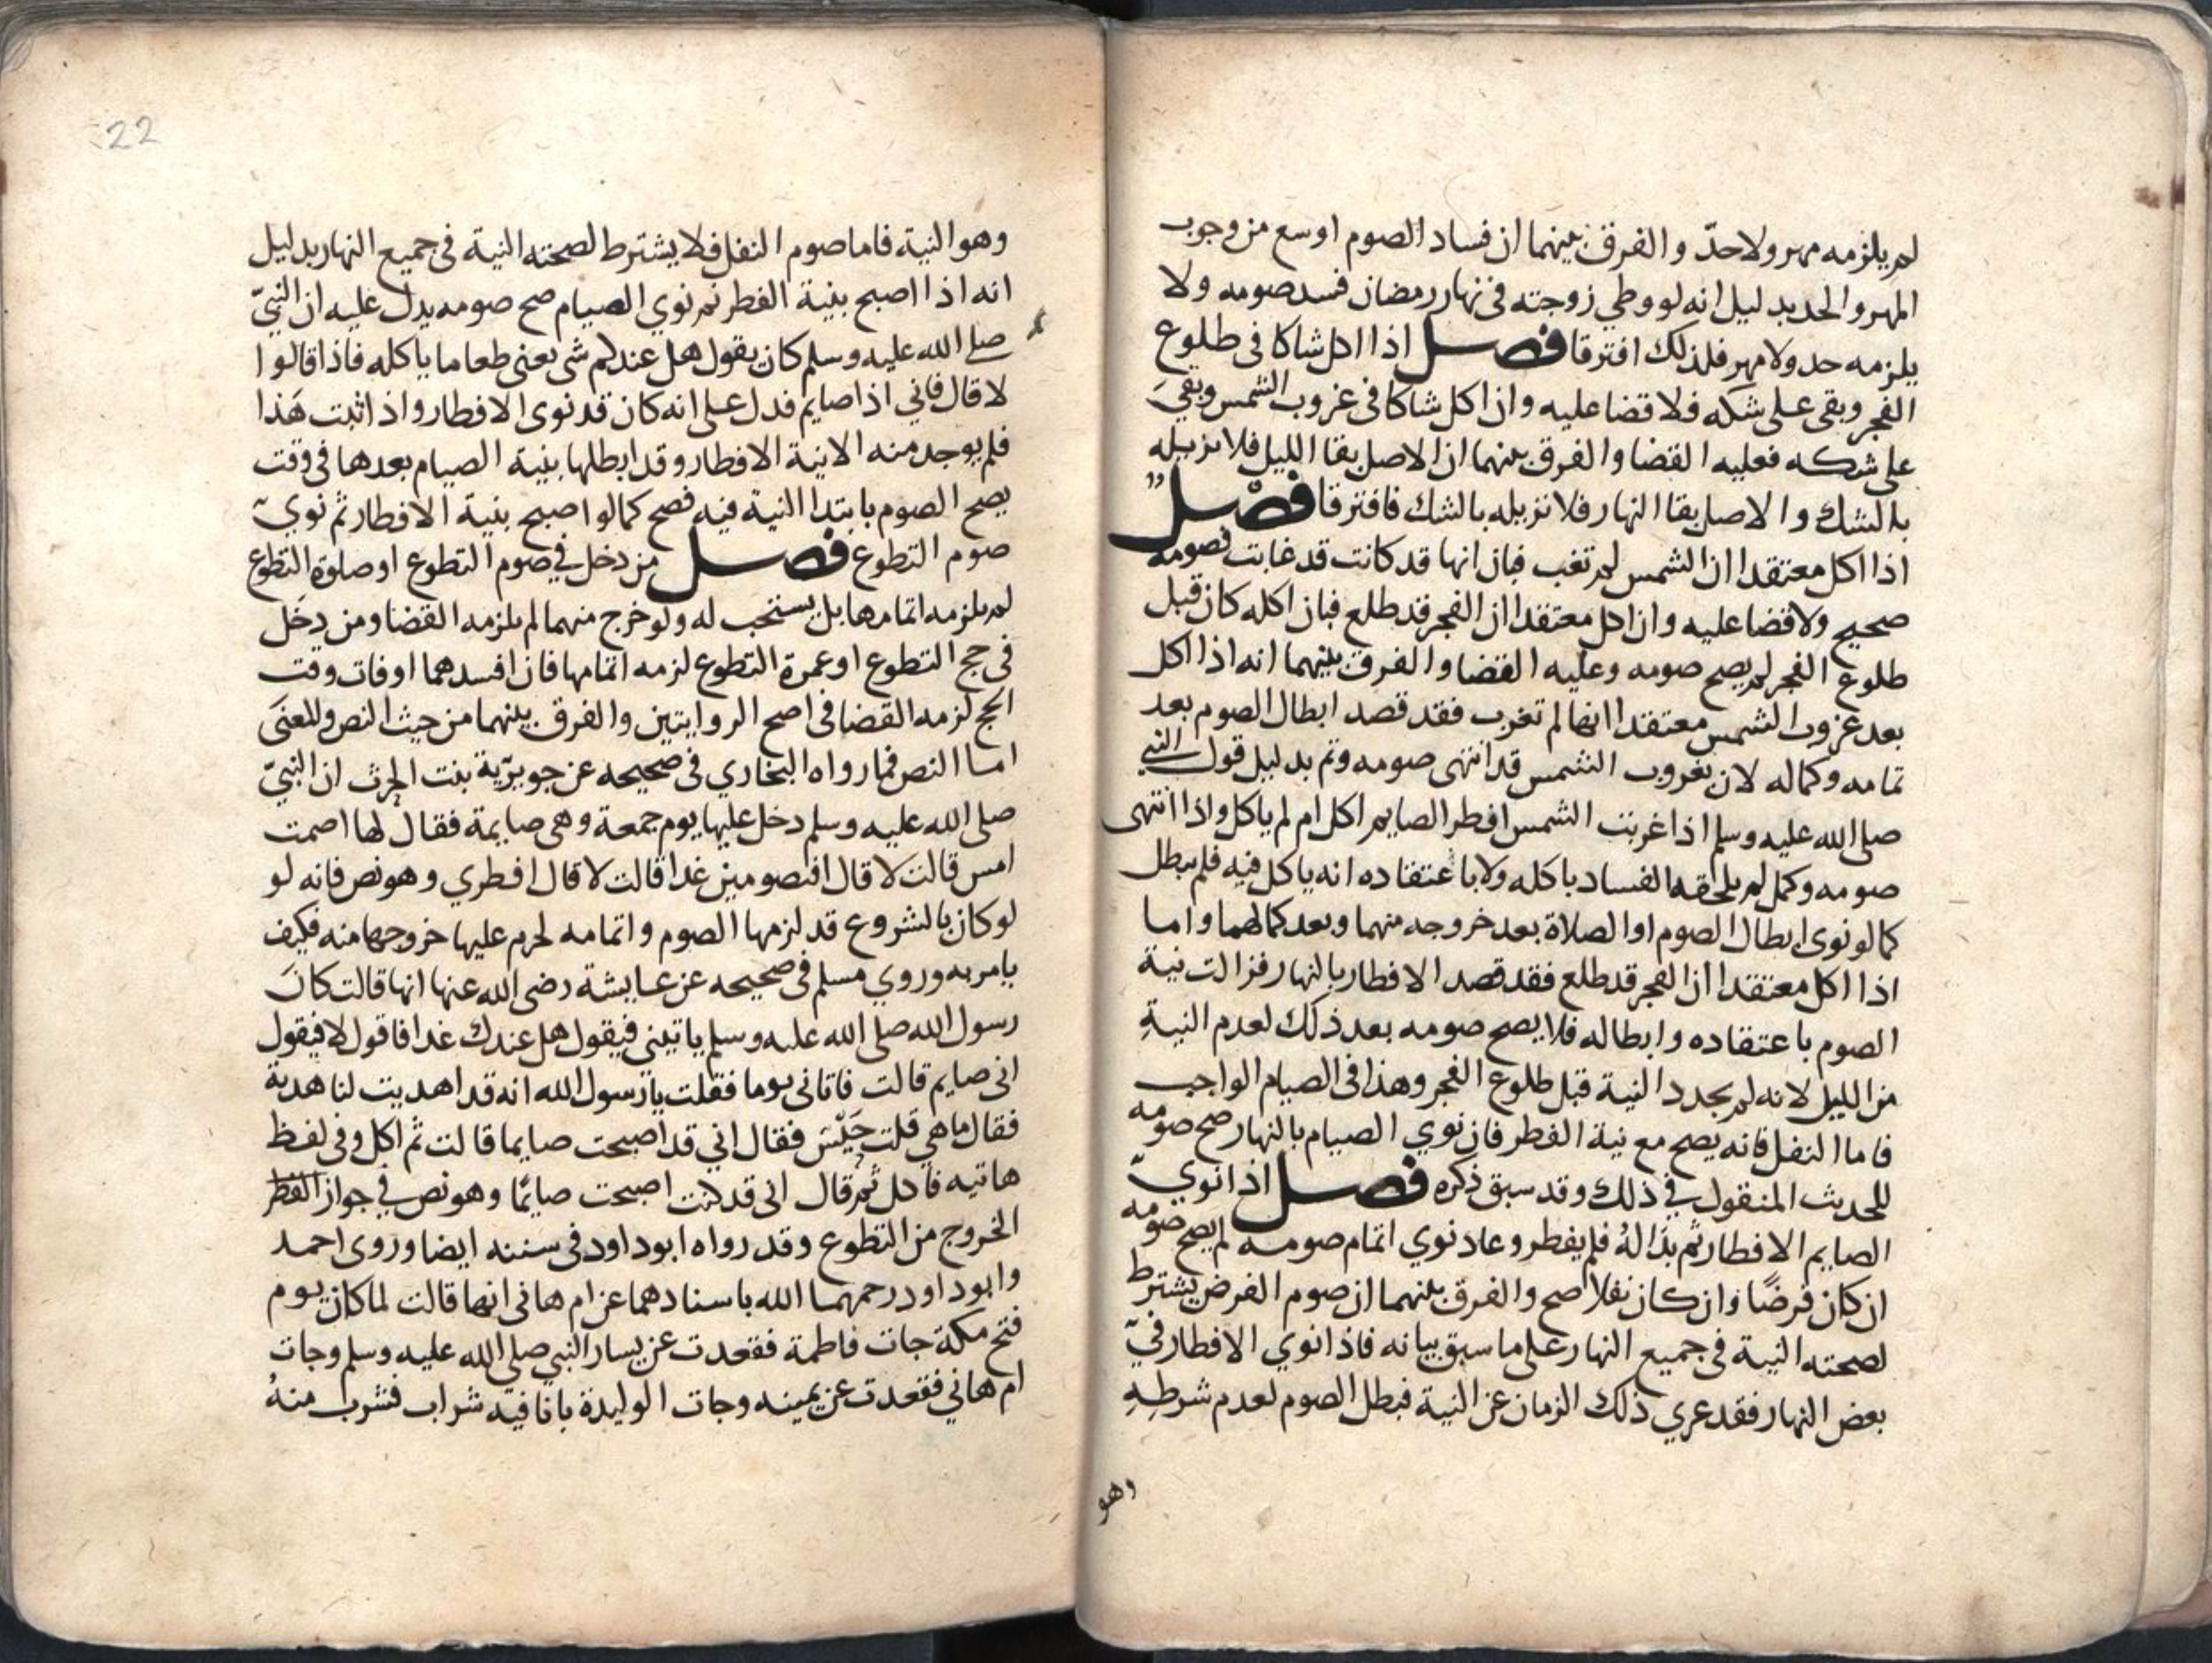 لم يلزمه مهر ولا حدّ والفرق بينهما ان فساد الصوم اوسع من وجوب
المهر والحد بدليل انه لو وطي زوجته في نهار رمضان فسد صومه ولا
يلزمه حد ولا مهر فلذلك افترقا فصل اذا اكل شاكا في طلوع
الفجر وبقى على شكه فلا قضا عليه وان اكل شاكا في غروب الشمس وبقيَ
على شكه فعليه القضا والفرق بينهما ان الاصل بقا الليل فلا نزيله
بالشك والاصل بقا النهار فلا نزيله بالشك فافترقا فصل
اذا اكل معتقدا ان الشمس لم تغب فبان انها قد كانت قد غابت فصومه
صحيح ولا قضا عليه وان اكل معتقدا ان الفجر قد طلع فبان اكله كان قبل
طلوع الفجر لم يصح صومه وعليه القضا والفرق بينهما انه اذا اكل
بعد غروب الشمس معتقدا انها لم تغرب فقد قصد ابطال الصوم بعد
تمامه وكماله لان بغروب الشمس قد انتهى صومه وتم بدليل قول النبي
صلى الله عليه وسلم اذا غربت الشمس افطر الصايم اكل ام لم ياكل واذا انتهى
صومه وكمل لم يلحقه الفساد باكله ولا باعتقاده انه ياكل فيه فلم يبطل
كما لو نوى ابطال الصوم او الصلاة بعد خروجه منهما وبعد كمالهما واما
اذا اكل معتقدا ان الفجر قد طلع فقد قصد الافطار بالنهار فزالت نية
الصوم باعتقاده وابطاله فلا يصح صومه بعد ذلك لعدم النيةِ
من الليل لانه لم يجدد النية قبل طلوع الفجر وهذا في الصيام الواجب
فاما النفل فانه يصح مع نية الفطر فان نوي الصيام بالنهار صح صومه
للحديث المنقول في ذلك وقد سبق ذكره فصل اذا نوي
الصايم الافطار ثم بدَا لهُ فلم يفطر وعاد نوي اتمام صومه لم يصح صومه
ان كان فرضًا وان كان نفلا صح والفرق بينهما ان صوم الفرض يشترط
لصحته النية في جميع النهار على ما سبق بيانه فاذا نوي الافطار في
بعض النهار فقد عري ذلك الزمان عن النية فبطل الصوم لعدم شرطهِ
وهو
22
وهو النية فاما صوم النفل فلا يشترط لصحته النية في جميع النهار بدليل
انه اذا اصبح بنية الفطر ثم نوي الصيام صح صومه يدل عليه ان النبيّ
صلى الله عليه وسلم كان يقول هل عندكم شي يعني طعاما ياكله فاذا قالوا
لا قال فاني اذا صايم فدل على انه كان قد نوى الافطار واذا ثبت هَذا
فلم يوجد منه الا نية الافطار وقد ابطلها بنية الصيام بعدها في وقت
يصح الصوم بابتدا النية فيه فصح كما لو اصبح بنية الافطار ثم نوي
صوم التطوع فصل من دخل في صوم التطوع او صلوة التطوع
لم يلزمه اتمامها بل يستحب له ولو خرج منهما لم يلزمه القضا ومن دخل
في حج التطوع او عمرة التطوع لزمه اتمامها فان افسدهما او فات وقت
الحج لزمه القضا في اصح الروايتين والفرق بينهما من حيث النص والمعنى
اما النص فما رواه البخاري في صحيحه عن جويرّية بنت الحرث ان النبيّ
صلى الله عليه وسلم دخل عليها يوم جمعة وهى صايمة فقال لها اصمت
امس قالت لا قال افتصومين غدا قالت لا قال افطري وهو نص فانه لو
لو كان بالشروع قد لزمها الصوم واتمامه لحرم عليها خروجها منه فكيف
يامر به وروي مسلم في صحيحه عن عايشة رضى الله عنها انها قالت كانَ
رسول الله صلى الله عليه وسلم ياتيني فيقول هل عندك غدا فاقول لا فيقول
انى صايم قالت فاتانى يوما فقلت يا رسول الله انه قد اهديت لنا هدية
فقال ما هي قلت حَيْس فقال اني قد اصبحت صايما قالت ثم اكل وفى لفظ
هاتيه فاكل ثم قال انى قد كنت اصبحت صايمًا وهو نص في جواز الفطر
الخروج من التطوع وقد رواه ابو داود في سننه ايضا وروى احمد
وابو داود رحمهما الله باسنادهما عن ام هانى انها قالت لما كان يوم
فتح مكة جات فاطمة فقعدت عن يسار النبي صلى الله عليه وسلم وجات
ام هاني فقعدت عن يمينه وجات الوليدة بانا فيه شراب فشرب منهُ